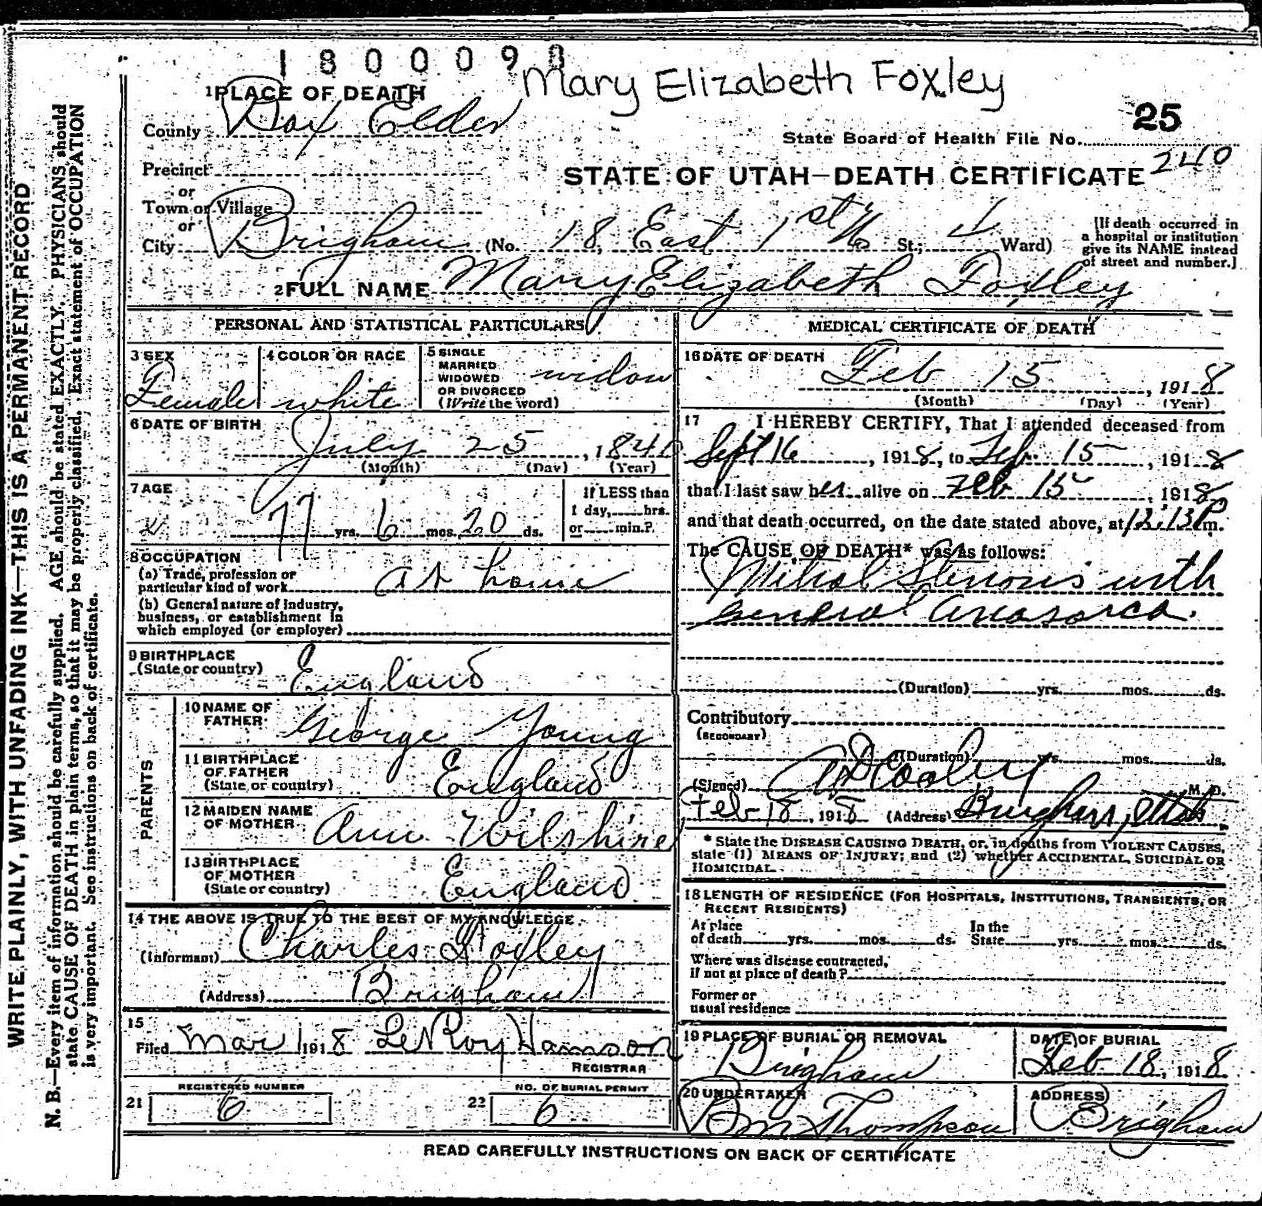 1800090
Mary Elizabeth Foxley
1 PLACE OF DEATH
County Box Elder
State Board of Health File No. 25
240
Precinct
or
Town or Village
or
City Brigham (No. 18 East 1st No St.; 4 Ward)
STATE OF UTAH—DEATH CERTIFICATE
[If death occurred in
a hospital or institution
give its NAME instead
of street and number.]
2 FULL NAME Mary Elizabeth Foxley
PERSONAL AND STATISTICAL PARTICULARS
3 SEX Female
4 COLOR OR RACE white
5 SINGLE
MARRIED
WIDOWED
OR DIVORCED
(Write the word) widow
6 DATE OF BIRTH
July 25, 1840
(Month) (Day) (Year)
7 AGE
77 yrs. 6 mos. 20 ds.
If LESS than
1 day, hrs.
or min.?
8 OCCUPATION
(a) Trade, profession or
particular kind of work at home
(b) General nature of Industry,
business, or establishment in
which employed (or employer)
9 BIRTHPLACE
(State or country) England
PARENTS
10 NAME OF
FATHER George Young
11 BIRTHPLACE
OF FATHER
(State or country) England
12 MAIDEN NAME
OF MOTHER Ann Wilshire
13 BIRTHPLACE
OF MOTHER
(State or country) England
14 THE ABOVE IS TRUE TO THE BEST OF MY KNOWLEDGE
(Informant) Charles Foxley
(Address) Brigham
15
Filed Mar 1 1918 LeRoy Hanson
REGISTRAR
REGISTERED NUMBER
21 6
NO. OF BURIAL PERMIT
22 6
MEDICAL CERTIFICATE OF DEATH
16 DATE OF DEATH
Feb 15, 1918
(Month) (Day) (Year)
17 I HEREBY CERTIFY, That I attended deceased from
Sept 16, 1918, to Feb. 15, 1918
that I last saw her alive on Feb 15, 1918
and that death occurred, on the date stated above, at 12:13 P m.
The CAUSE OF DEATH* was as follows:
Mitral Stenosis with
general anasarca.
(Duration) yrs. mos. ds.
Contributory
(SECONDARY)
(Duration) yrs. mos. ds.
(Signed) AD Cooley M. D.
Feb 18, 1918 (Address) Brigham, Utah
* State the DISEASE CAUSING DEATH, or, in deaths from VIOLENT CAUSES,
state (1) MEANS OF INJURY; and (2) whether ACCIDENTAL, SUICIDAL OR
HOMICIDAL.
18 LENGTH OF RESIDENCE (FOR HOSPITALS, INSTITUTIONS, TRANSIENTS, OR
RECENT RESIDENTS)
At place
of death yrs. mos. ds.
In the
State yrs. mos. ds.
Where was disease contracted,
if not at place of death?
Former or
usual residence
19 PLACE OF BURIAL OR REMOVAL
Brigham
DATE OF BURIAL
Feb. 18, 1918
20 UNDERTAKER
Thompson
ADDRESS
Brigham
READ CAREFULLY INSTRUCTIONS ON BACK OF CERTIFICATE
WRITE PLAINLY, WITH UNFADING INK—THIS IS A PERMANENT RECORD
N. B.—Every item of information should be carefully supplied. AGE should be stated EXACTLY. PHYSICIANS should
state CAUSE OF DEATH in plain terms, so that it may be properly classified. Exact statement of OCCUPATION
is very important. See instructions on back of certificate.